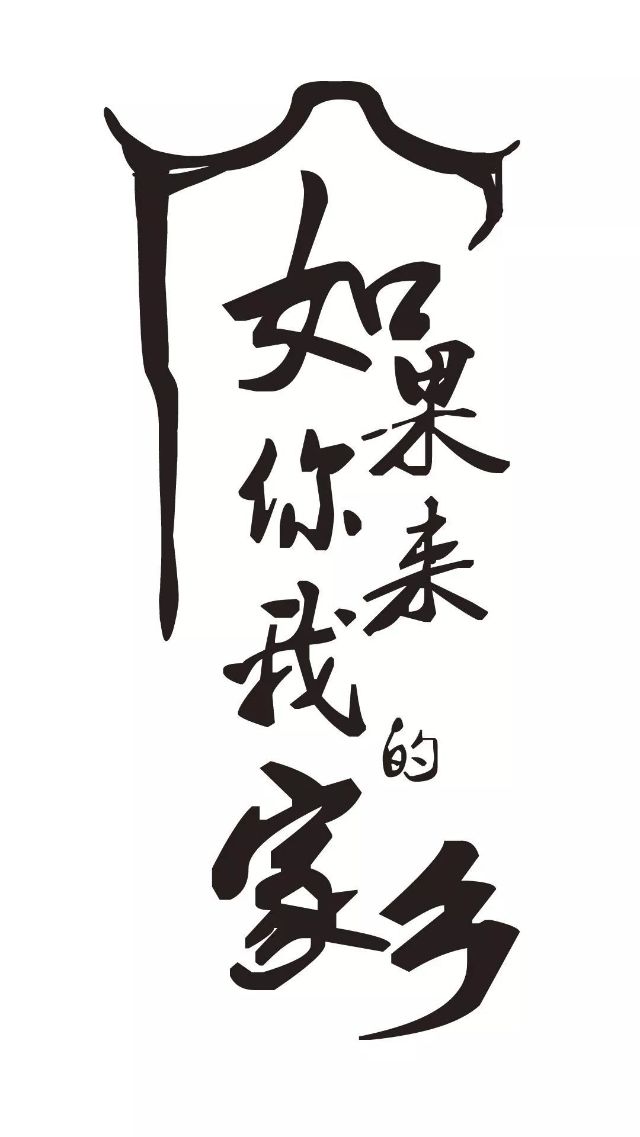 如果
你来
我的
家乡